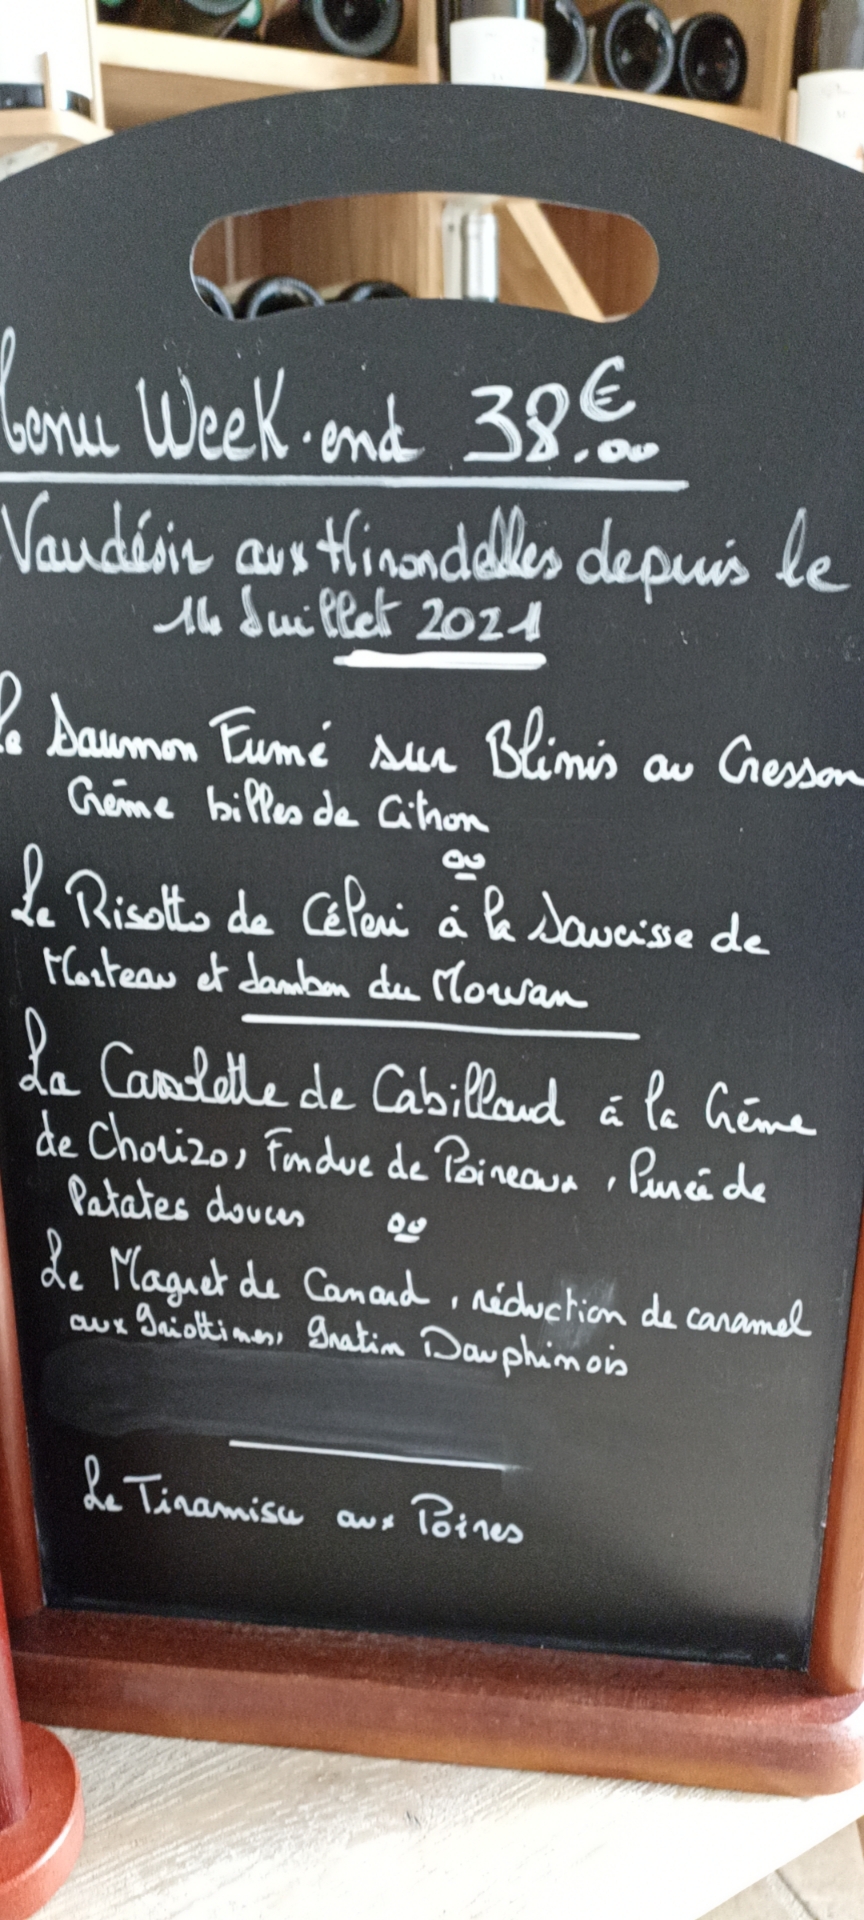 Menu Week-end 38.00€
Vaudésir aux Hirondelles depuis le
14 Juillet 2021
Le Saumon Fumé sur Blinis au Cresson
Crème billes de Citron
ou
Le Risotto de Céleri à la Saucisse de
Morteau et Jambon du Morvan
La Cassolette de Cabillaud à la Crème
de Chorizo, Fondue de Poireaux, Purée de
Patates douces
ou
Le Magret de Canard, réduction de caramel
aux Griottines, Gratin Dauphinois
Le Tiramisu aux Poires